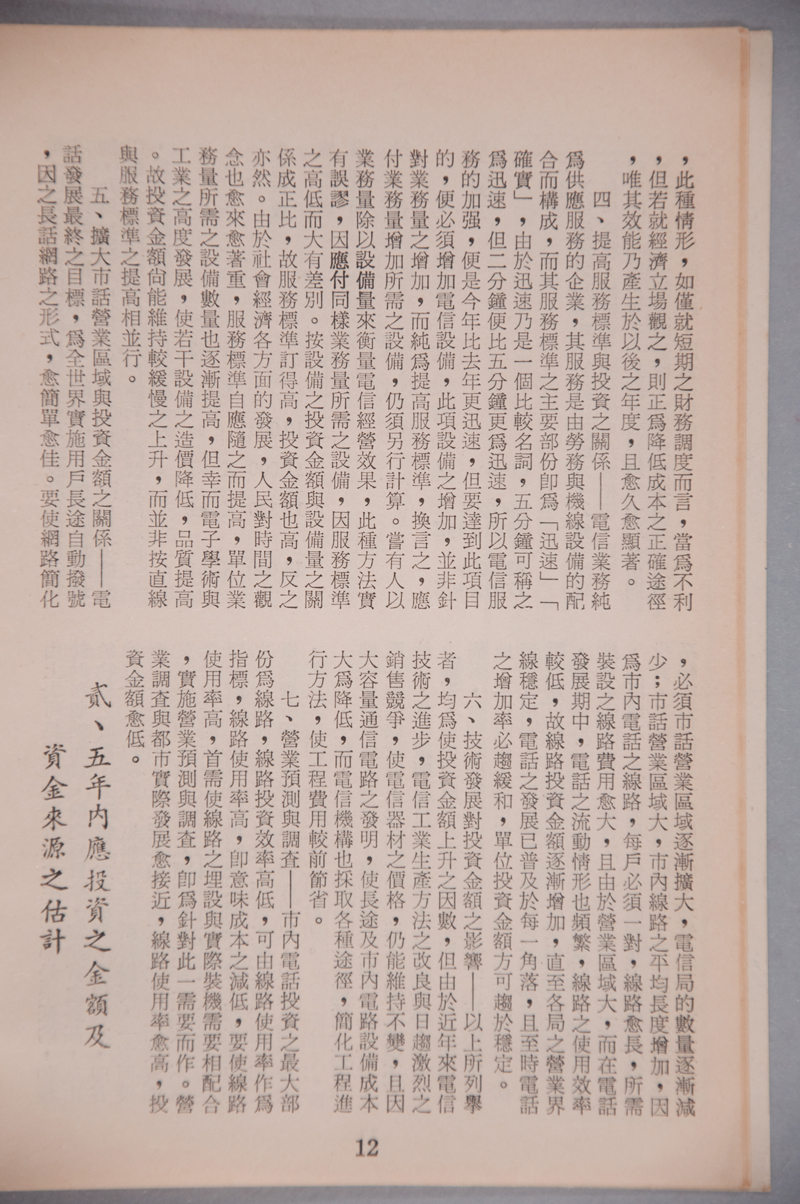 ，此種情形，如僅就短期之財務調度而言，當爲不利
，但若就經濟立場觀之，則正爲降低成本之正確途徑
，唯其效能乃產生於以後之年度，且愈久愈顯著。
四、提高服務標準與投資之關係——電信業務純
爲供應服務的企業，其服務是由勞務與機線設備的配
合而構成，而其服務標準之主要部份卽爲「迅速」「
確實」，由於迅速乃是一個比較名詞，五分鐘可稱之
爲迅速，但二分鐘便比五分鐘更爲迅速，所以電信服
務的加强，便是今年比去年更迅速，但要達到此項目
的，便必須增加電信設備，此項設備之增加，並非針
對業務量之增加，而純爲提高服務標準，換言之，應
付業務量增加所需之設備，仍須另行計算。嘗有人以
業務量除以設備量來衡量電信經營效果，此種方法實
有誤謬，因應付同樣業務量所需之設備，因服務標準
之高低而大有差別。按設備之投資金額與設備量之關
係成正比，故服務標準訂得高，投資金額也高，反之
亦然。由於社會經濟各方面的發展，人民對時間之觀
念也愈來愈著重，服務標準自應隨之而提高，單位業
務量所需之設備數量也逐漸提高，但幸而電子學術與
工業之高度發展，使若干設備之造價降低，品質提高
。故投資金額尙能維持較緩慢之上升，而並非按直線
與服務標準之提高相並行。
五、擴大市話營業區域與投資金額之關係——電
話發展最終之目標，爲全世界實施用戶長途自動撥號
，因之長話網路之形式，愈簡單愈佳。要使網路簡化
，必須市話營業區域逐漸擴大，電信局的數量逐漸減
少；市話營業區域大，市內線路之平均長度增加，因
爲市內電話之線路，每戶必須一對，線路愈長，所需
裝設之線路費用愈大，且由於營業區域大，而在電話
發展期中，電話之流動情形也頻繁，線路之使用效率
較低，故線路投資金額逐漸增加，直至各局之營業界
線穩定，電話之發展已普及於每一角落，且至時電話
之增加率必趨緩和，單位投資金額方可趨於穩定。
六、技術發展對投資金額之影響——以上所列舉
者，均爲使投資金額上升之因數，但由於近年來電信
技術之進步，電信工業生產方法之改良與日趨激烈之
銷售競爭，使電信器材之價格，仍能維持不變，且因
大容量通信電路之發明，使長途及市內電路設備成本
大爲降低，而電信機構也採取各種途徑，簡化工程進
行方法，使工程費用較前節省。
七、營業預測與調查——市內電話投資之最大部
份爲線路，線路投資效率高低，可由線路使用率作爲
指標，線路使用率高，卽意味成本之減低，要使線路
使用率高，首需使線路之埋設與實際裝機需要相配合
，實施營業預測與調查，卽爲針對此一需要而作。營
業調查與都市實際發展愈接近，線路使用率愈高，投
資金額愈低。
貳、五年內應投資之金額及
資金來源之估計
12